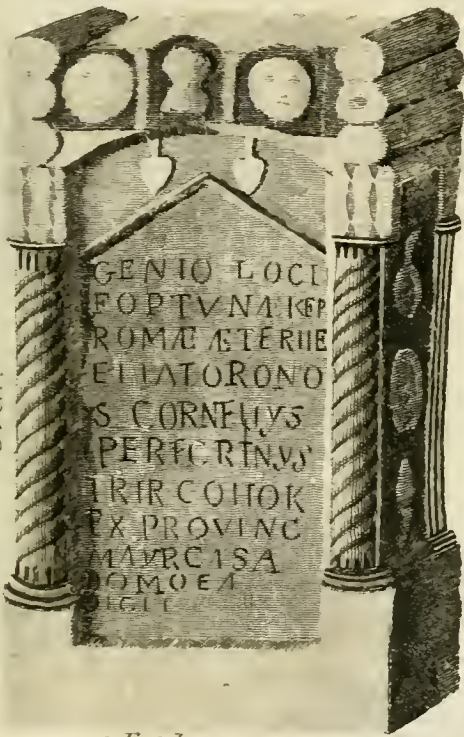 GENIO LOCI
FOPTVNÆ REP
ROMÆ ÆTERIIE
ET FATO BONO
S CORNELIVS
PERECRINVS
TRIR COHOR
EX PROVINC
MAVR CASA
DOMO EA